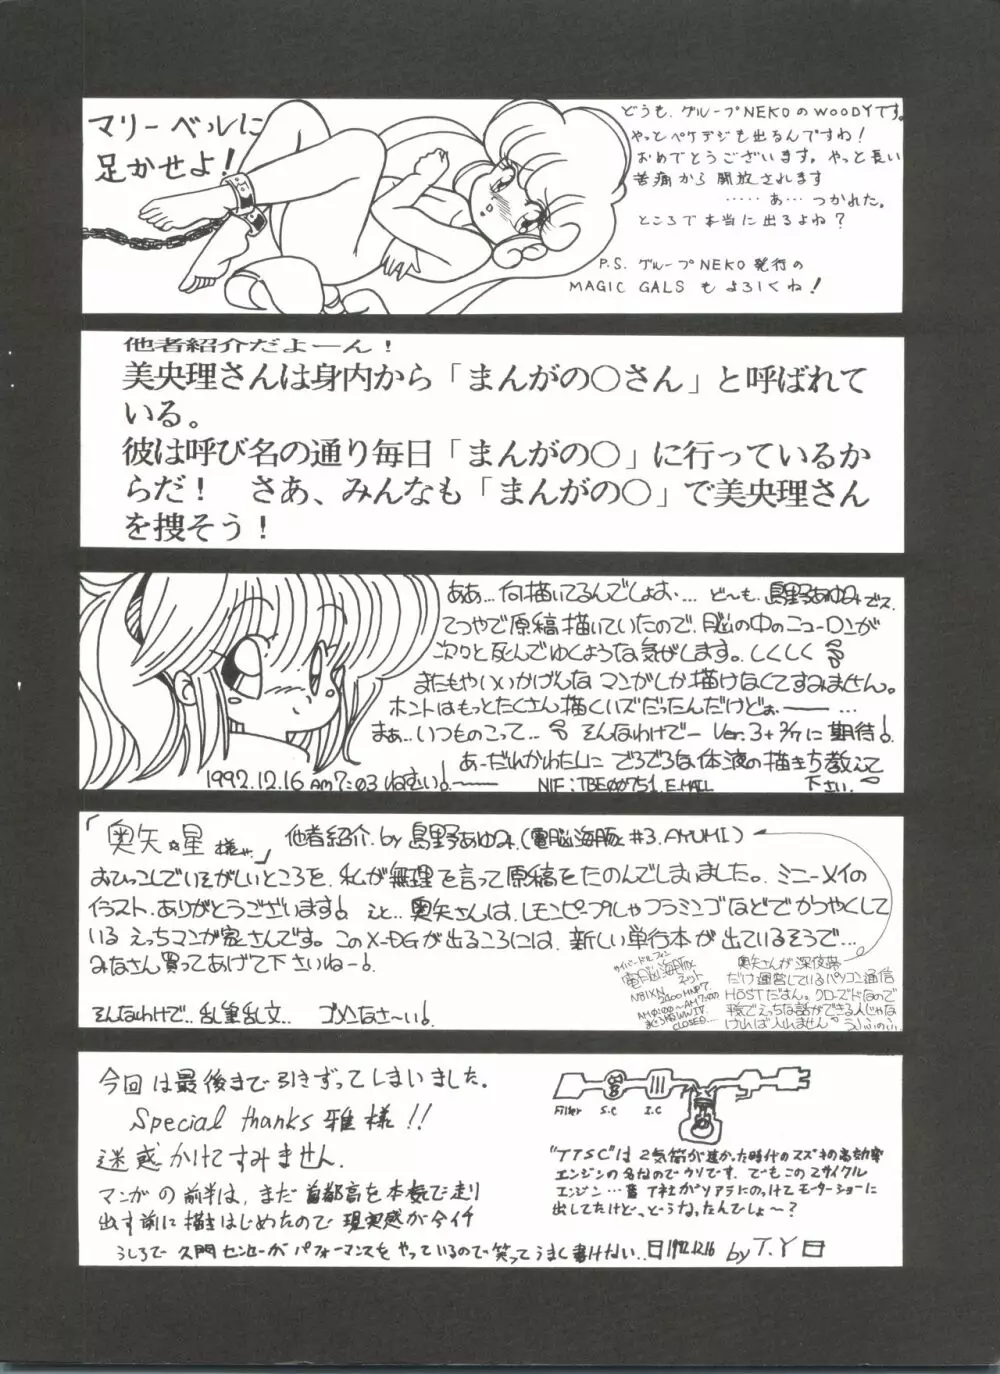 マリーベルに
足かせよ!
どうも、グループNEKOのWOODYです。
やっとペケデジも出るんですね!
おめでとうございます。やっと長い
苦痛から開放されます
……あ…つかれた。
ところで本当に出るよね?
P.S. グループNEKO発行の
MAGIC GALSもよろしくね!
他者紹介だよーん!
美央理さんは身内から「まんがの〇さん」と呼ばれて
いる。
彼は呼び名の通り毎日「まんがの〇」に行っているか
らだ! さあ、みんなも「まんがの〇」で美央理さん
を捜そう!
ああ…何描いてるんでしょお…. ど〜も. 島野あゆみでス.
てつやで原稿描いていたので、脳の中のニューロンが
次々と死んでゆくような気がします。しくしく
またもやいいかげんな マンガしか描けなくてすみません。
ホントはもっとたくさん描くハズだったんだけどぉ――…
まぁ…いつものこって… そんなわけでー Ver.3+3/ｿに期待!
あーだれかわたしに でろでろな体液の描き方教えて
下さい.
1992.12.16 AM7:03 ねむい!――
NIF:TBE00751. E.MAIL
「奥矢☆星様」
他者紹介. by 島野あゆみ.(電脳海豚 #3. AYUMI)
おひっこしでいそがしいところを、私が無理を言って原稿をたのんでしまいました。ミニーメイの
イラスト、ありがとうございます! えと…奥矢さんは、レモンピープルやフラミンゴなどでかつやくして
いる えっちマンガ家さんです。このX-DGが出るころには、新しい単行本が出ているそうで…
みなさん買ってあげて下さいねー!
そんなわけで… 乱筆乱文… ゴメンなさ〜い!
サイバードルフィン
電脳海豚
ネット
N81XN
2400 MNP7
AM0:00〜AM7:00
CLOSED...
奥矢さんが深夜帯
だけ運営しているパソコン通信
HOSTだよん。クローズドなので
平気でえっちな話ができる人じゃな
ければ入れません うふふのふ
今回は最後まで引きずってしまいました。
Special thanks 雅様!!
迷惑かけてすみません.
マンガの前半は、まだ首都高を本気で走り
出す前に描きはじめたので現実感が今イチ
うしろで久門センセーがパフォーマンスをやっているので笑ってうまく書けない.. 1992.12.16 by T.Y
Filter S.C I.C
"TTSC"は2気筒が甚かった時代のスズキの高効率
エンジンの名なのでウソです。でもこの2サイクル
エンジン…昔T社がソアラにのっけてモーターショーに
出してたけど、どうなったんでしょ〜?